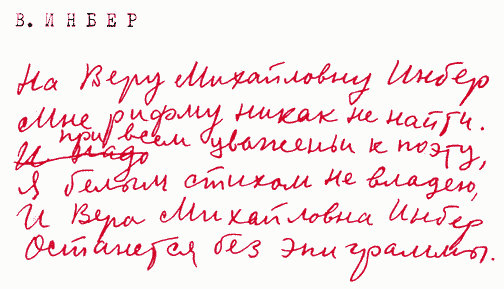 В. ИНБЕР
На Веру Михайловну Инбер
Мне рифму никак не найти.
При всем уваженьи к поэту,
И надо
Я белым стихом не владею,
И Вера Михайловна Инбер
Останется без эпиграммы.